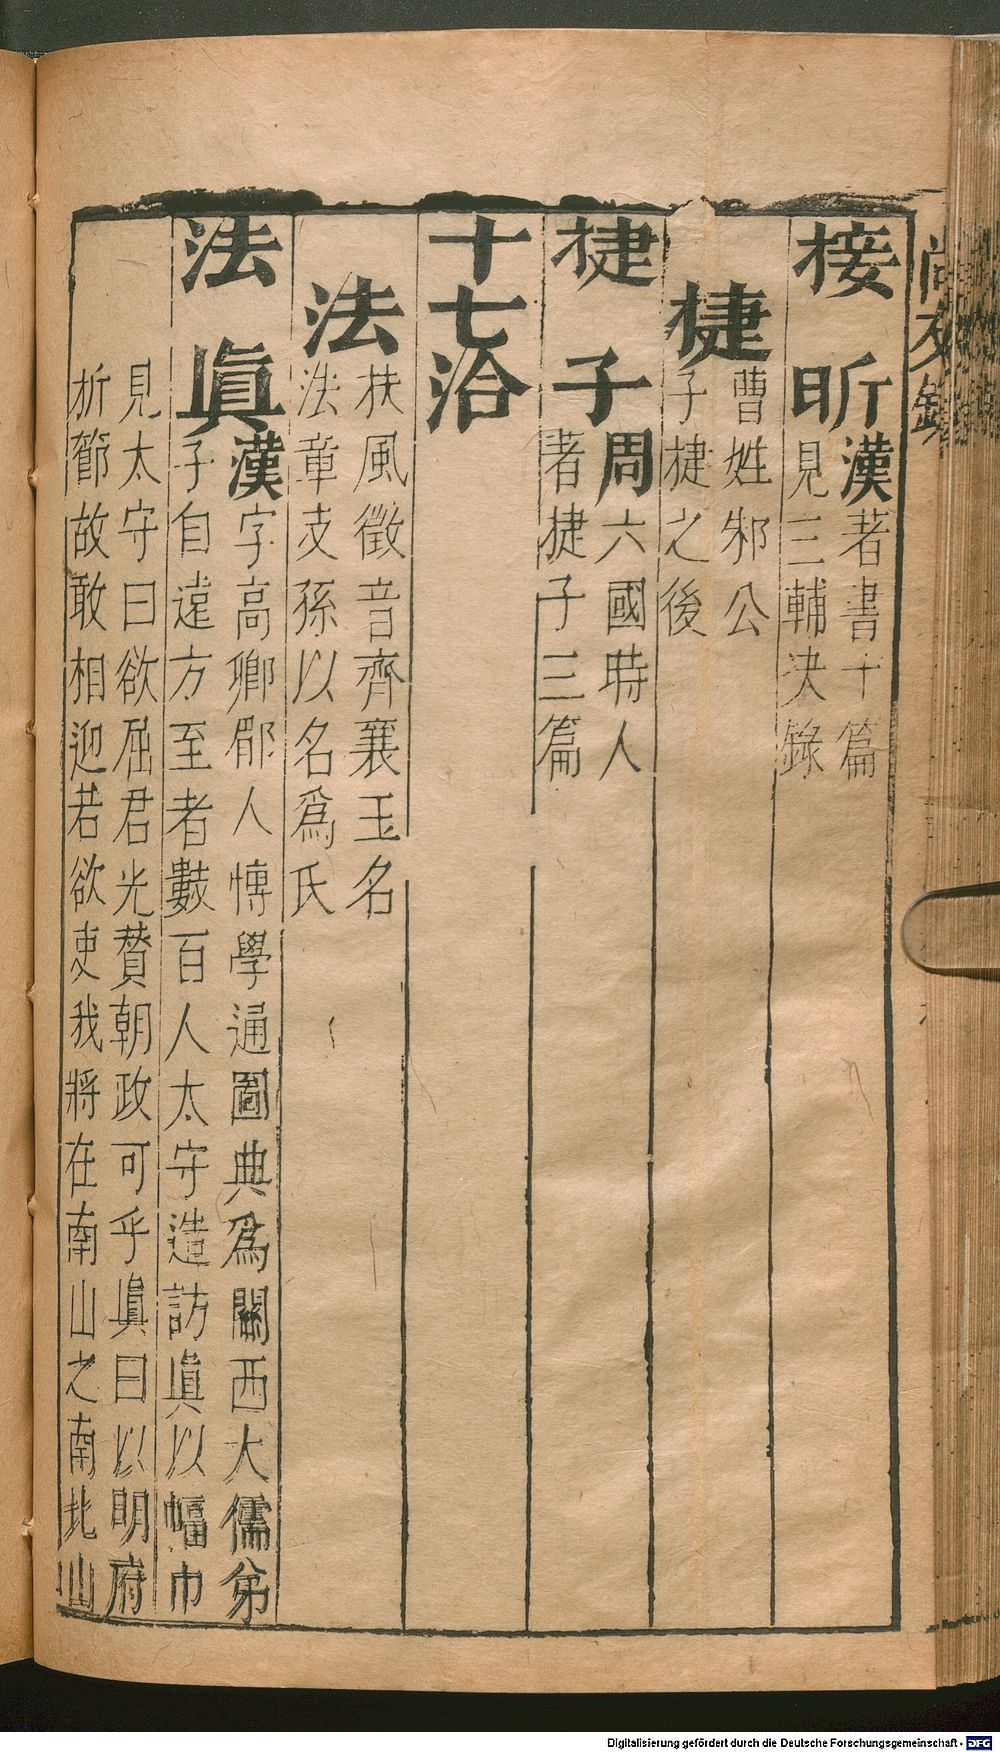 接昕漢著書十篇
見三輔决錄
捷曹姓邾公
子捷之後
捷子周六國時人
著捷子三篇
十七洽
法扶風徵音齊襄王名
法章支孫以名爲氏
法眞漢字高卿郡人博學通圖典爲關西大儒弟
子自遠方至者數百人太守造訪眞以幅巾
見太守曰欲屈君光贊朝政可乎眞曰以明府
折節故敢相迎若欲吏我將在南山之南北山
Digitalisierung gefördert durch die Deutsche Forschungsgemeinschaft - DFG